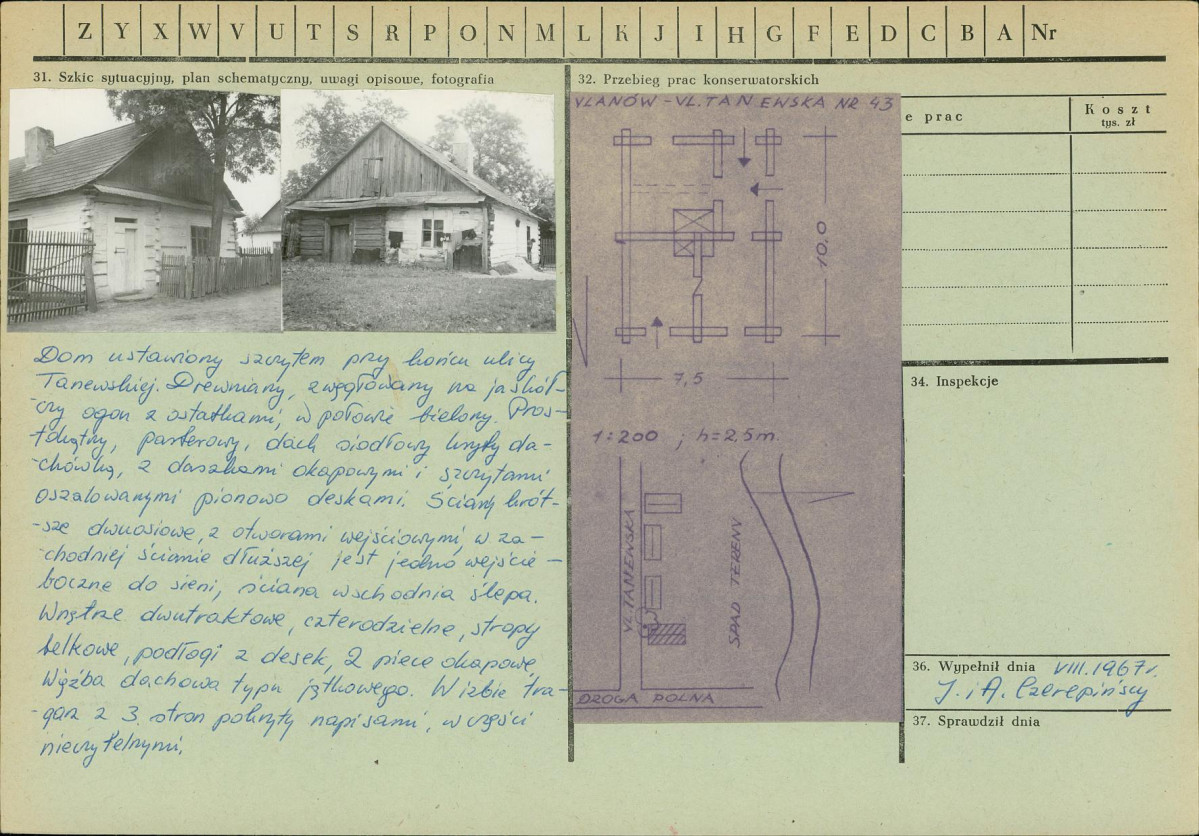 Z Y X W V U T S R P O N M L K J I H G F E D C B A Nr
31. Szkic sytuacyjny, plan schematyczny, uwagi opisowe, fotografia
Dom ustawiony szczytem przy końcu ulicy
Tanewskiej. Drewniany, zwęgłowany na jaskół-
-czy ogon z ostatkami, w połowie bielony. Pros-
-tokątny, parterowy, dach siodłowy kryty da-
-chówką, z daszkami okapowymi i szczytami
oszalowanymi pionowo deskami. Ściany krót-
-sze dwuosiowe, z otworami wejściowymi, w za-
-chodniej ścianie dłuższej jest jedno wejście
boczne do sieni, ściana wschodnia ślepa.
Wnętrze dwutraktowe, czterodzielne, stropy
belkowe, podłogi z desek, 2 piece okapowe,
Więźba dachowa typu jętkowego. W izbie tra-
-garz z 3. stron pokryty napisami, w części
nieczytelnymi.
32. Przebieg prac konserwatorskich
VLANÓW - VL. TANEWSKA NR 43
10.0
7,5
1:200 ; h=2,5m.
VL. TANEWSKA
SPAD TERENV
DROGA POLNA
e prac
Koszt
tys. zł
34. Inspekcje
36. Wypełnił dnia VIII.1967r.
J. i A. Czerepińscy
37. Sprawdził dnia